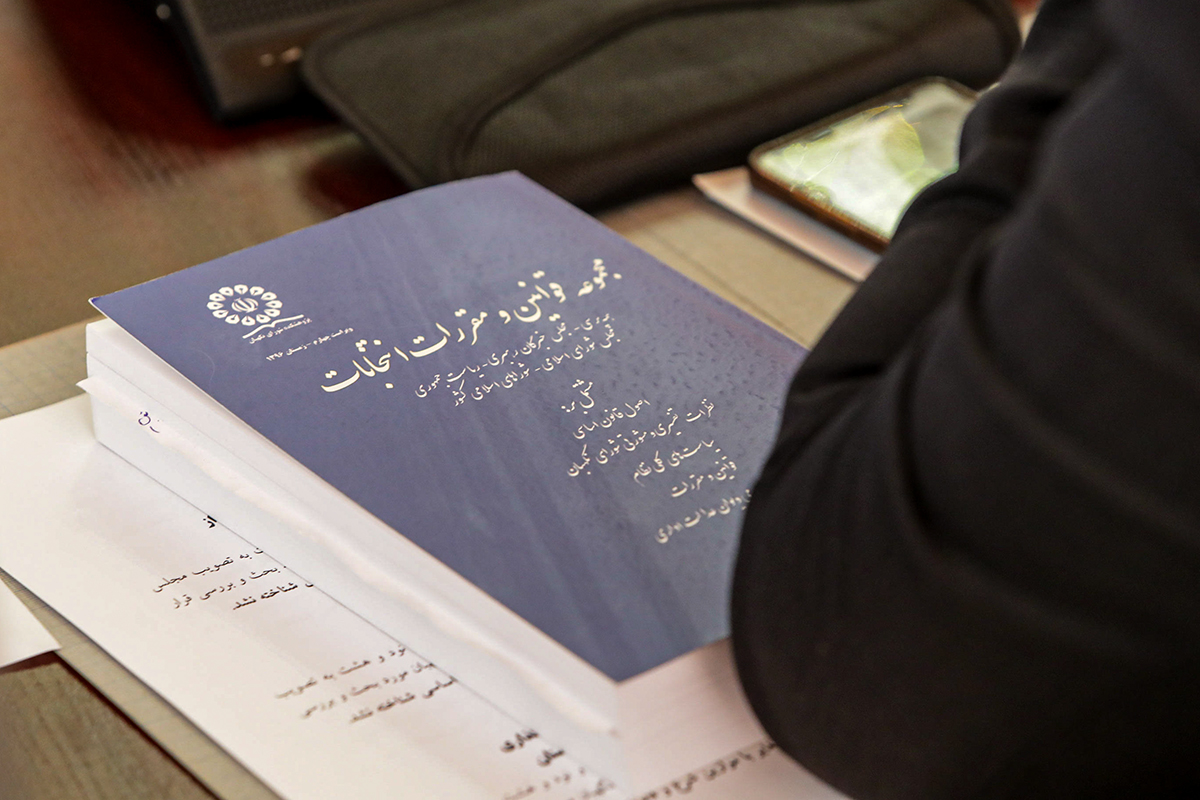 پژوهشکده شورای نگهبان
ویراست چهارم - زمستان ۱۳۹۶
مجموعه قوانین و مقررات انتخابات
همه‌پرسی - مجلس خبرگان رهبری - ریاست جمهوری
مجلس شورای اسلامی - شوراهای اسلامی کشور
مشتمل بر:
اصول قانون اساسی
نظرات تفسیری و مشورتی شورای نگهبان
سیاست‌های کلی نظام
قوانین و مقررات
دیوان عدالت اداری
به تصویب مجلس
بحث و بررسی قرار
شناخته نشد.
و هشت به تصویب
مورد بحث و بررسی
شناخته نشد.